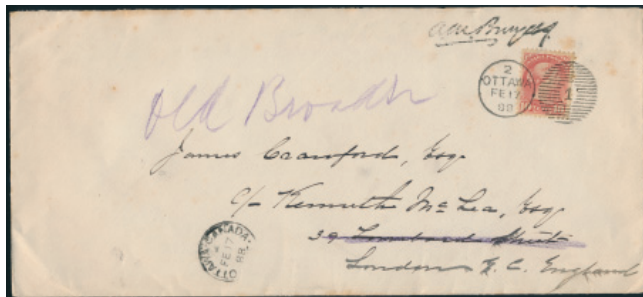 2
OTTAWA
FE 17
88
1
Old Broad St
James Crawford, Esq.
c/o Kenneth McLea, Esq.
39 Lombard Street
London E.C. England
OTTAWA·CANADA·
FE 17
88